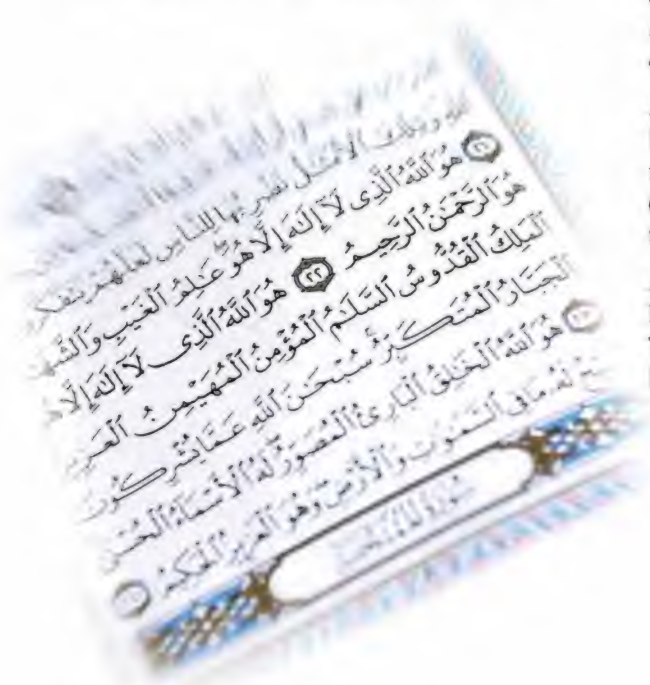 وَتِلْكَ ٱلْأَمْثَٰلُ نَضْرِبُهَا لِلنَّاسِ لَعَلَّهُمْ يَتَفَكَّرُو
٢١ هُوَ ٱللَّهُ ٱلَّذِى لَآ إِلَٰهَ إِلَّا هُوَ عَٰلِمُ ٱلْغَيْبِ وَٱلشَّهَٰ
هُوَ ٱلرَّحْمَٰنُ ٱلرَّحِيمُ ٢٢ هُوَ ٱللَّهُ ٱلَّذِى لَآ إِلَٰهَ إِلَّا هُ
ٱلْمَلِكُ ٱلْقُدُّوسُ ٱلسَّلَٰمُ ٱلْمُؤْمِنُ ٱلْمُهَيْمِنُ ٱلْعَزِي
ٱلْجَبَّارُ ٱلْمُتَكَبِّرُ سُبْحَٰنَ ٱللَّهِ عَمَّا يُشْرِكُونَ
هُوَ ٱللَّهُ ٱلْخَٰلِقُ ٱلْبَارِئُ ٱلْمُصَوِّرُ لَهُ ٱلْأَسْمَآءُ ٱلْحُسْنَ
لَهُۥ مَا فِى ٱلسَّمَٰوَٰتِ وَٱلْأَرْضِ وَهُوَ ٱلْعَزِيزُ ٱلْحَكِيمُ